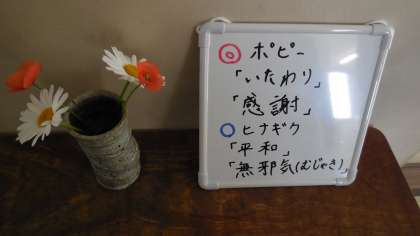 ◎ ポピー
「いたわり」
「感謝」
○ ヒナギク
「平和」
「無邪気(むじゃき)」